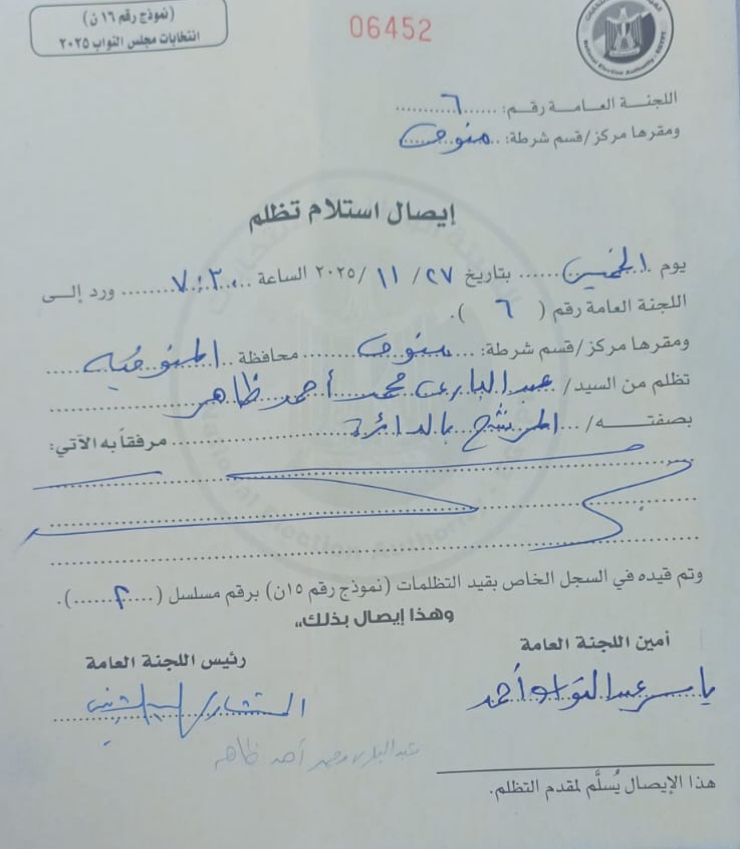 (نموذج رقم ١٦ ن)
انتخابات مجلس النواب ٢٠٢٥
06452
National Election Authority - EGYPT
اللجنة العامة رقم: ٦
ومقرها مركز/قسم شرطة: منوف
إيصال استلام تظلم
يوم الخميس بتاريخ ٢٧ / ١١ / ٢٠٢٥ الساعة ٧:٣٠ ورد إلى
اللجنة العامة رقم ( ٦ ).
ومقرها مركز/قسم شرطة: منوف محافظة المنوفية
تظلم من السيد/ عبد البارى محمد أحمد ظاهر
بصفته/ المرشح بالدائرة مرفقاً به الآتي:
وتم قيده في السجل الخاص بقيد التظلمات (نموذج رقم ١٥ن) برقم مسلسل ( ٢ ).
وهذا إيصال بذلك،،
أمين اللجنة العامة
رئيس اللجنة العامة
ياسر عبد التواب أحمد
المستشار/
عبد البارى محمد أحمد ظاهر
هذا الإيصال يُسلَّم لمقدم التظلم.